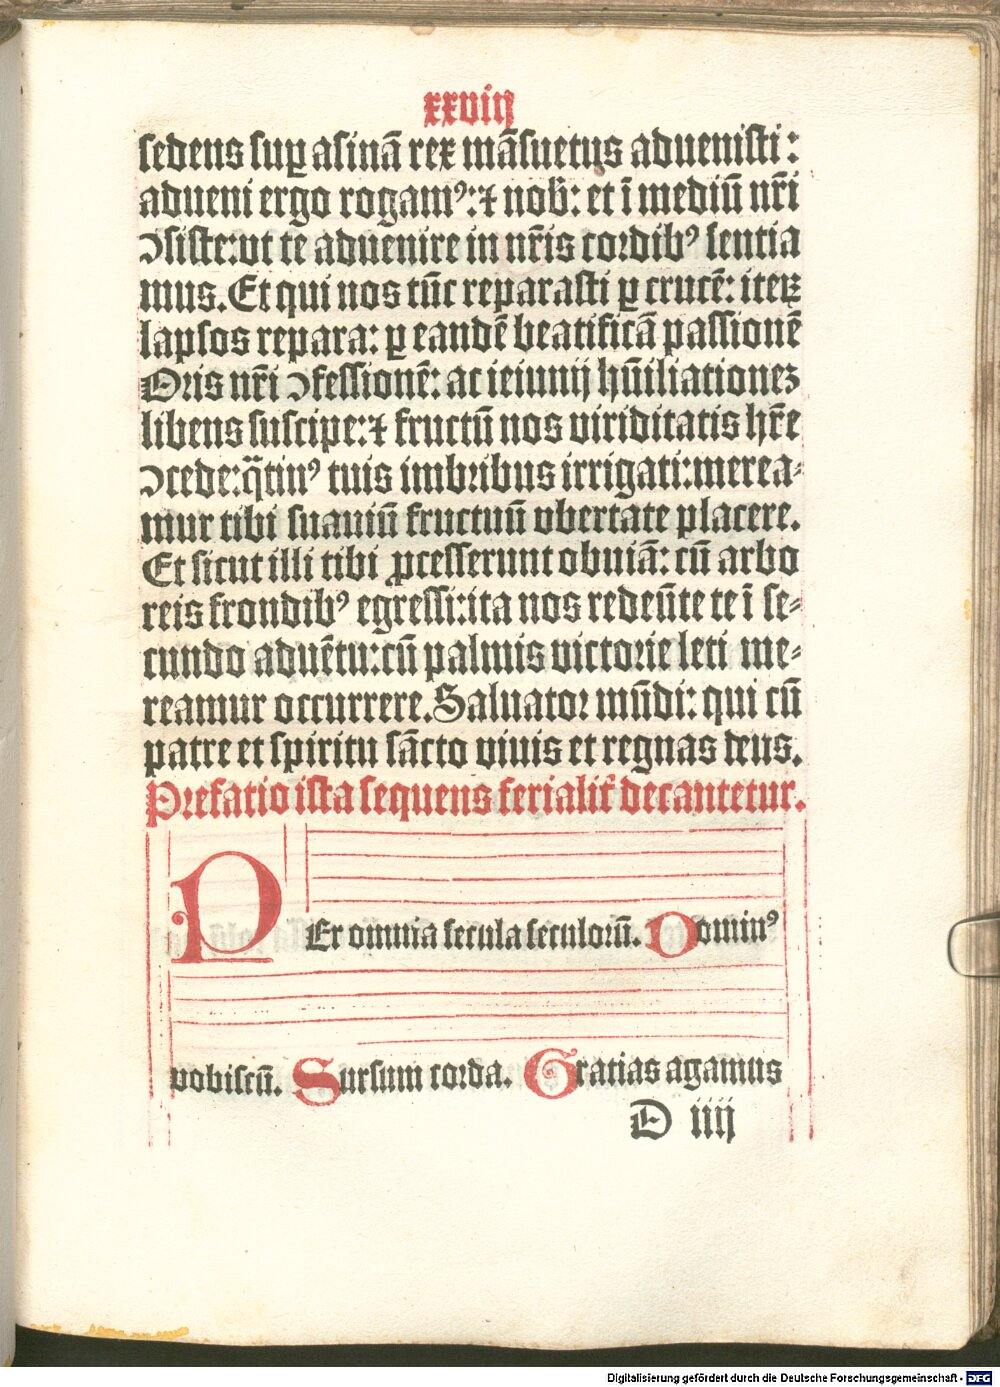 xxviij
sedens suꝑ asinā rex māsuetus aduenisti:
adueni ergo rogamꝰ: ⁊ nob̄: et ī mediū nr̄i
ↄsiste: ut te aduenire in nr̄is cordibꝰ sentia
mus. Et qui nos tūc reparasti ꝑ crucē: iteꝝ
lapsos repara: ꝑ eandē beatificā passionē
Oris nr̄i ↄfessionē: ac ieiunij hūiliationeꝫ
libens suscipe: ⁊ fructū nos viriditatis hr̄e
ↄcede: q̄tinꝰ tuis imbribus irrigati: merea⸗
mur tibi suauiū fructuū vbertate placere.
Et sicut illi tibi ꝓcesserunt obuiā: cū arbo
reis frondibꝰ egressi: ita nos redeūte te ī se⸗
cundo aduētu: cū palmis victorie leti me⸗
reamur occurrere. Saluator mūdi: qui cū
patre et spiritu sācto viuis et regnas deus.
Prefatio ista sequens ferialit̄ decantetur.
PEr omnia secula seculorū. Dominꝰ
vobiscū. Sursum corda. Gratias agamus
D iiij
Digitalisierung gefördert durch die Deutsche Forschungsgemeinschaft - DFG